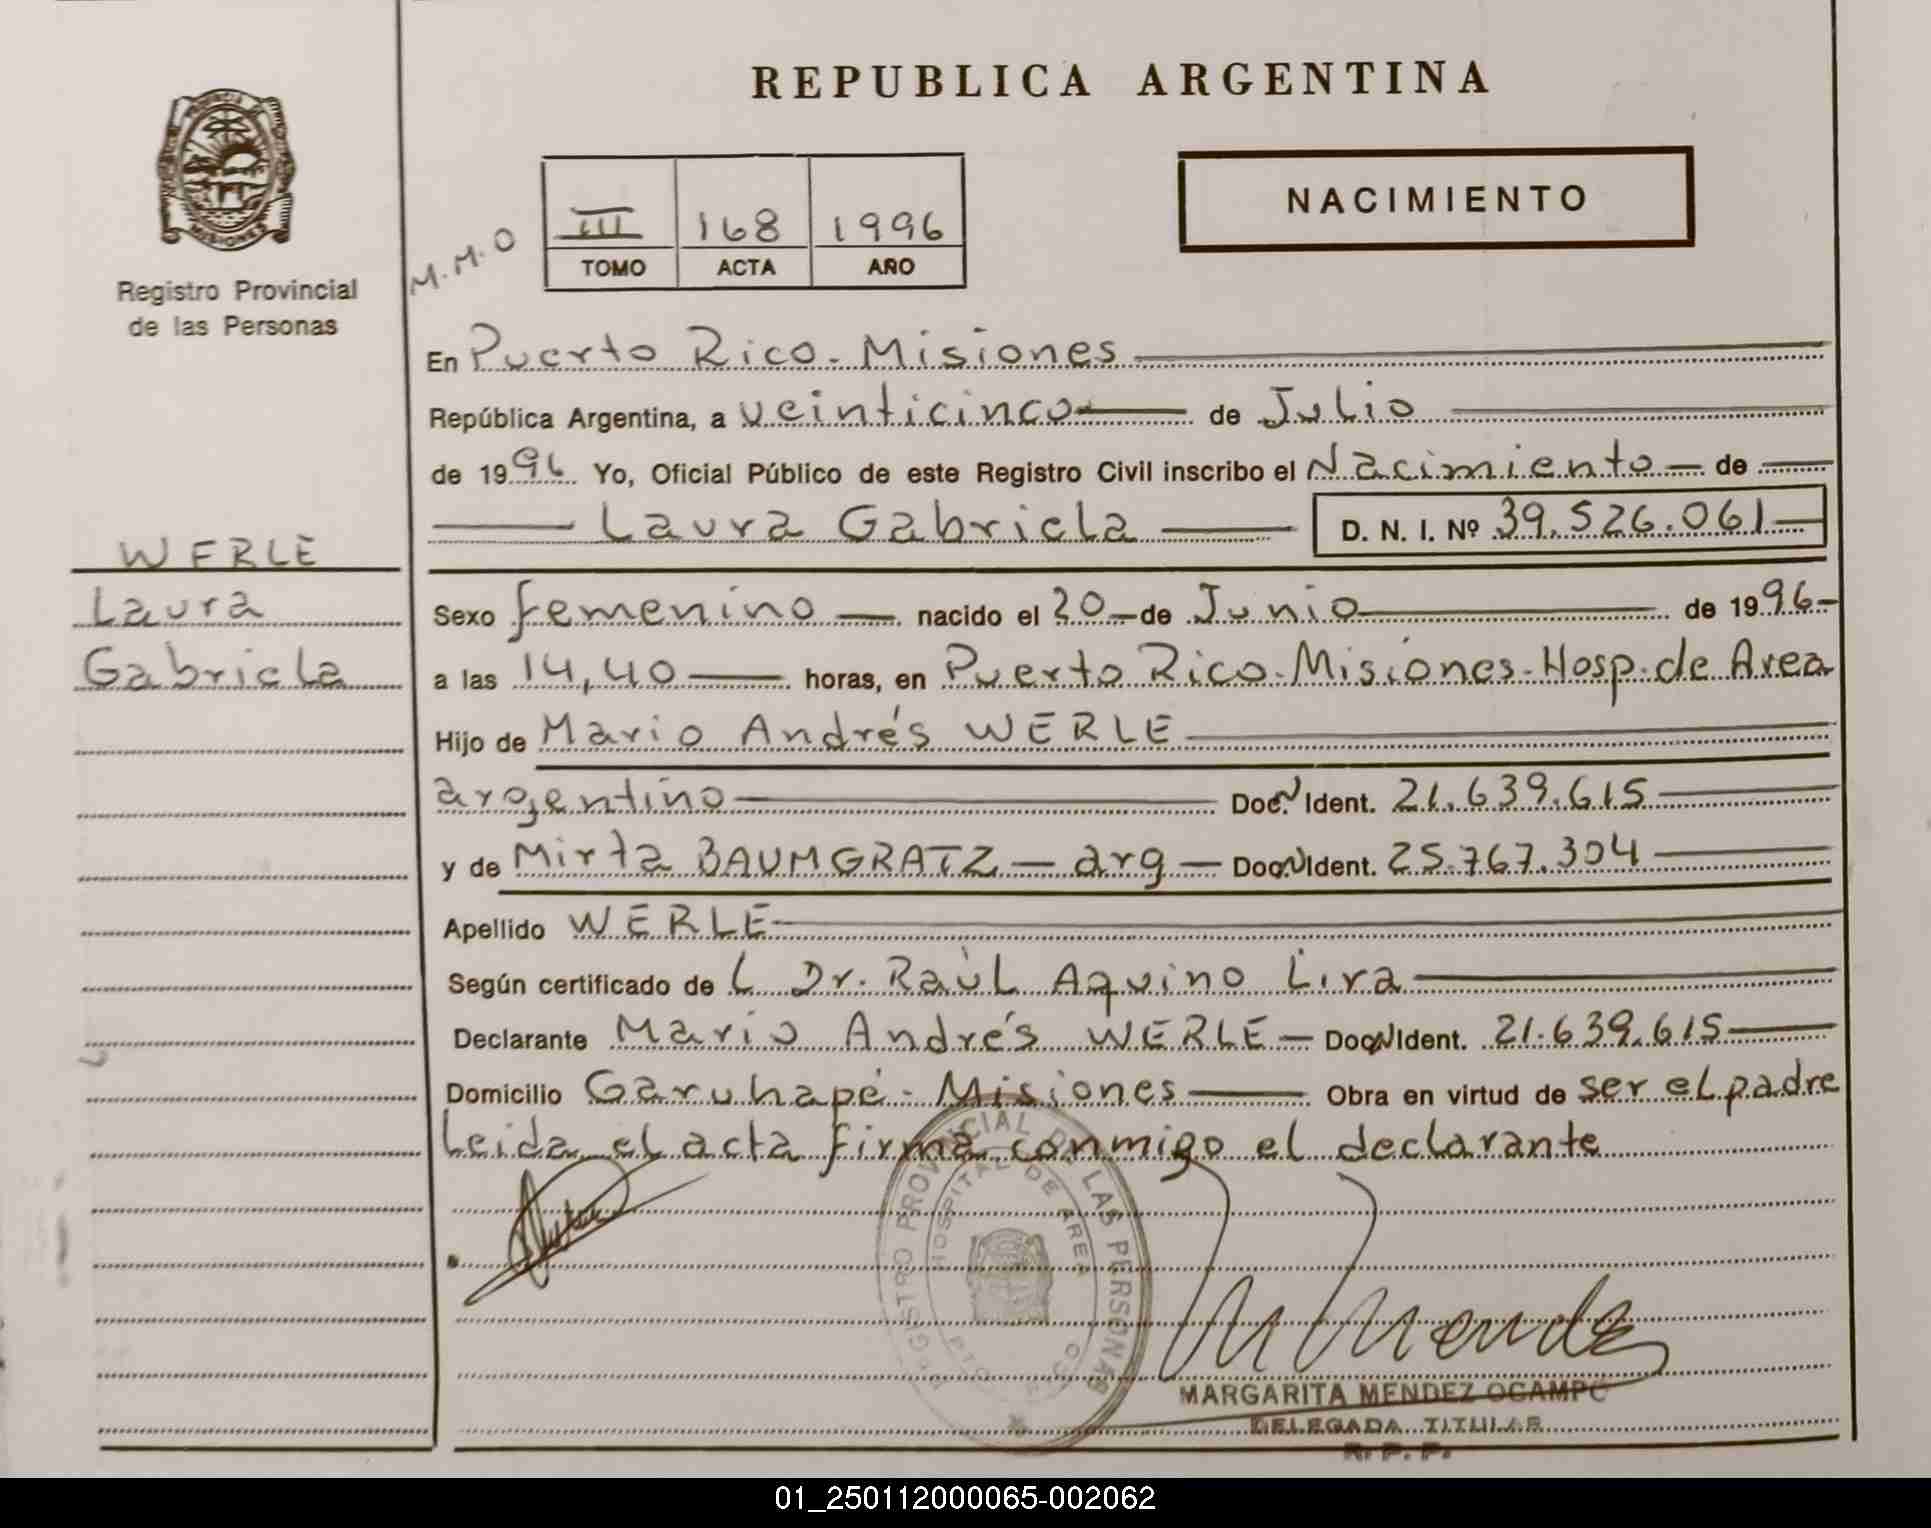 REPUBLICA ARGENTINA
PROVINCIA DE
MISIONES
Registro Provincial
de las Personas
M.M.O
III 168 1996
TOMO ACTA AÑO
NACIMIENTO
En Puerto Rico - Misiones
República Argentina, a veinticinco de Julio
de 1996 Yo, Oficial Público de este Registro Civil inscribo el Nacimiento de
Laura Gabriela D. N. I. Nº 39.526.061
WERLE
Laura
Gabriela
Sexo femenino nacido el 20 de Junio de 1996
a las 14,40 horas, en Puerto Rico - Misiones - Hosp. de Area
Hijo de Mario Andrés WERLE
argentino Doc. N Ident. 21.639.615
y de Mirta BAUMGRATZ - arg - Doc. N Ident. 25.767.304
Apellido WERLE
Según certificado de L Dr. Raúl Aquino Lira
Declarante Mario Andrés WERLE - Doc. N Ident. 21.639.615
Domicilio Garuhapé - Misiones Obra en virtud de ser el padre
Leida el acta firma conmigo el declarante
REGISTRO PROVINCIAL DE LAS PERSONAS
HOSPITAL DE AREA
PTO. RICO
M Mendez
MARGARITA MENDEZ OCAMPO
DELEGADA TITULAR
R. P. P.
01_250112000065-002062